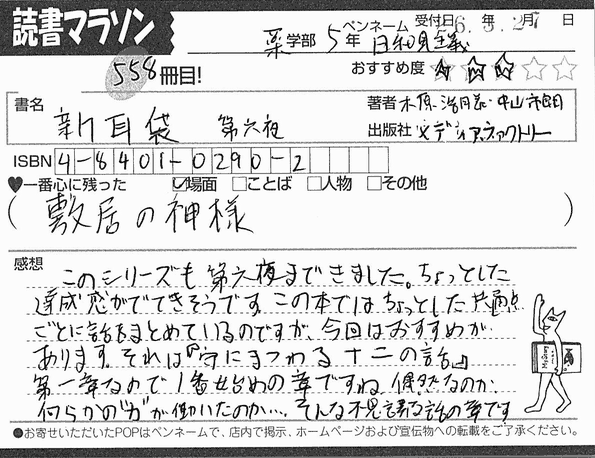 読書マラソン
薬学部 5年 ペンネーム 日和見主義 受付日 6年 3月 27日
558冊目! おすすめ度 ★★★☆☆
書名 新耳袋 第六夜
著者 木原浩勝・中山市朗
出版社 メディアファクトリー
ISBN 4-8401-0290-2
♥一番心に残った ☑場面 □ことば □人物 □その他
(敷居の神様)
感想
このシリーズも第六夜まできました。ちょっとした
達成感がでてきそうです。この本ではちょっとした共通点
ごとに話をまとめているのですが、今回はおすすめが
あります。それは『守にまつわる十二の話』
第一章なので1番始めの章ですね。偶然なのか、
何らかの"力"が働いたのか…、そんな不思議な話の章です
●お寄せいただいたPOPはペンネームで、店内で掲示、ホームページおよび宣伝物への転載をご了承ください。